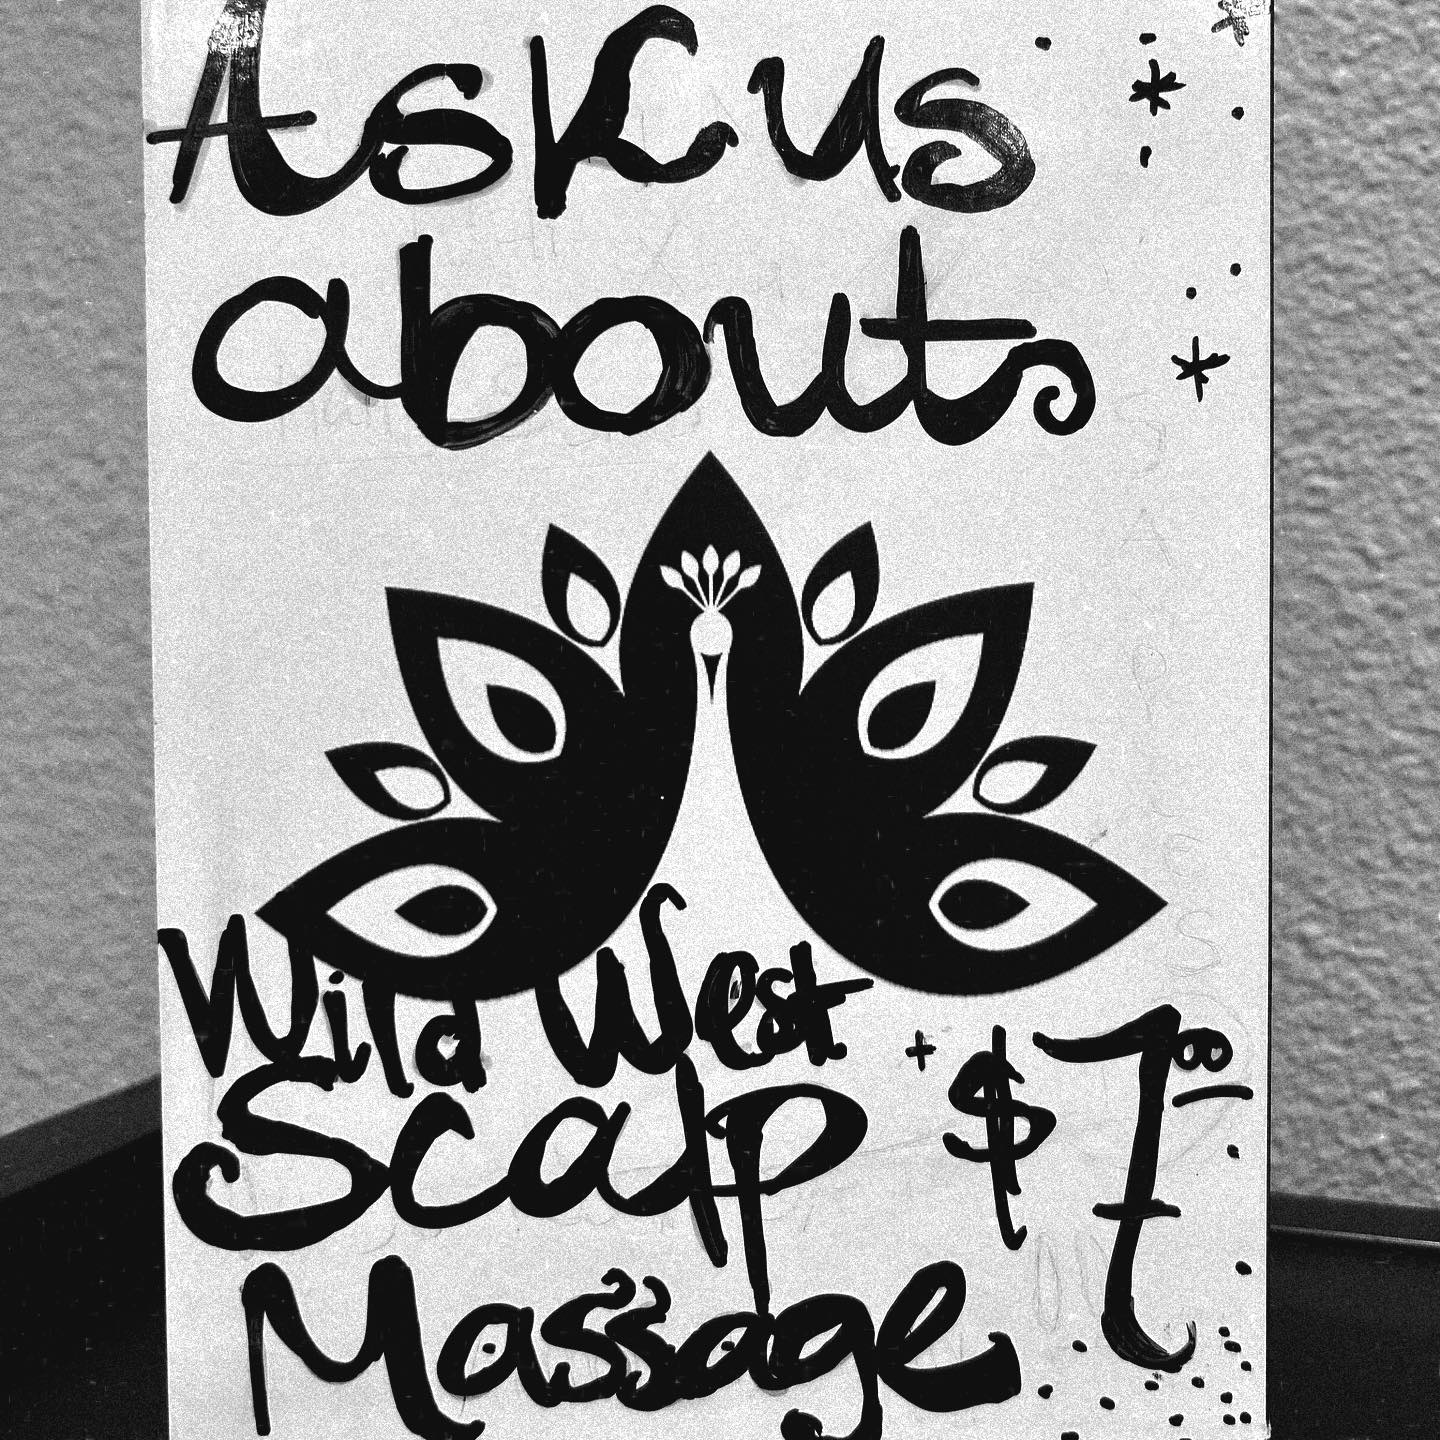 Ask us
about
Wild West
Scalp + $7.00
Massage